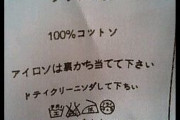 100%コットン
アイロソは裏かち当てて下さい
ドテイクリーニソダして下ちい